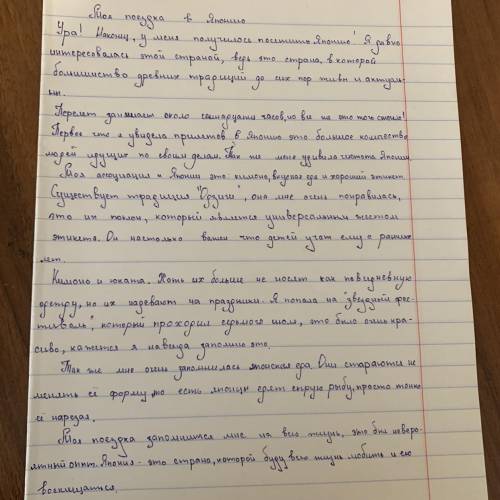 Моя поездка в Японию
Ура! Наконец, у меня получилось посетить Японию! Я давно
интересовалась этой страной, ведь это страна, в которой
большинство древних традиций до сих пор живы и актуаль-
ны.
Перелет занимает около семнадцати часов, но
Первое что я увидела прилетев в Японию это большое количество
людей идущих по своим делам. Так же меня удивила чистота Японии.
Моя ассоциация к Японии это кимоно, вкусная еда и хороший этикет.
Существует традиция "Одзиги", она мне очень понравилась,
это их поклон, который является универсальным жестом
этикета. Он настолько важен что детей учат ему с ранних
лет.
Кимоно и юката. Хоть их больше не носят как повседневную
одежду, но их надевают на праздники. Я попала на "звёздный фес-
тиваль", который проходил седьмого июля, это было очень кра-
сиво, кажется я навсегда запомню это.
Так же мне очень запомнилась японская еда. Они стараются не
менять её форму, то есть японцы едят сырую рыбу, просто тонко
её нарезая.
Моя поездка запомнилась мне на всю жизнь, это был неверо-
ятный опыт. Япония - это страна, которой буду всю жизнь любить и ею
восхищаться.